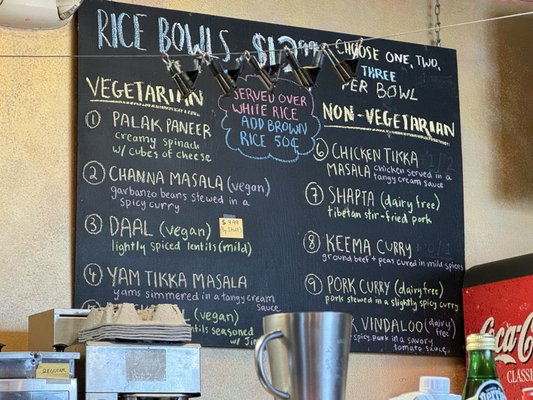 RICE BOWLS
CHOOSE ONE, TWO,
THREE
PER BOWL
VEGETARIAN
SERVED OVER
WHITE RICE
ADD BROWN
RICE 50¢
NON-VEGETARIAN
1 PALAK PANEER
creamy spinach
w/ cubes of cheese
2 CHANNA MASALA (vegan)
garbanzo beans stewed in a
spicy curry
3 DAAL (vegan)
lightly spiced lentils (mild)
4 YAM TIKKA MASALA
yams simmered in a tangy cream
sauce
(vegan)
lentils seasoned
6 CHICKEN TIKKA
MASALA chicken served in a
tangy cream sauce
7 SHAPTA (dairy free)
tibetan stir-fried pork
8 KEEMA CURRY
ground beef + peas cured in mild spices
9 PORK CURRY (dairy free)
pork stewed in a slightly spicy curry
VINDALOO (dairy
free)
pork in a savory
tomato sauce
REGULAR
Coca-Cola
CLASSIC
Perrier